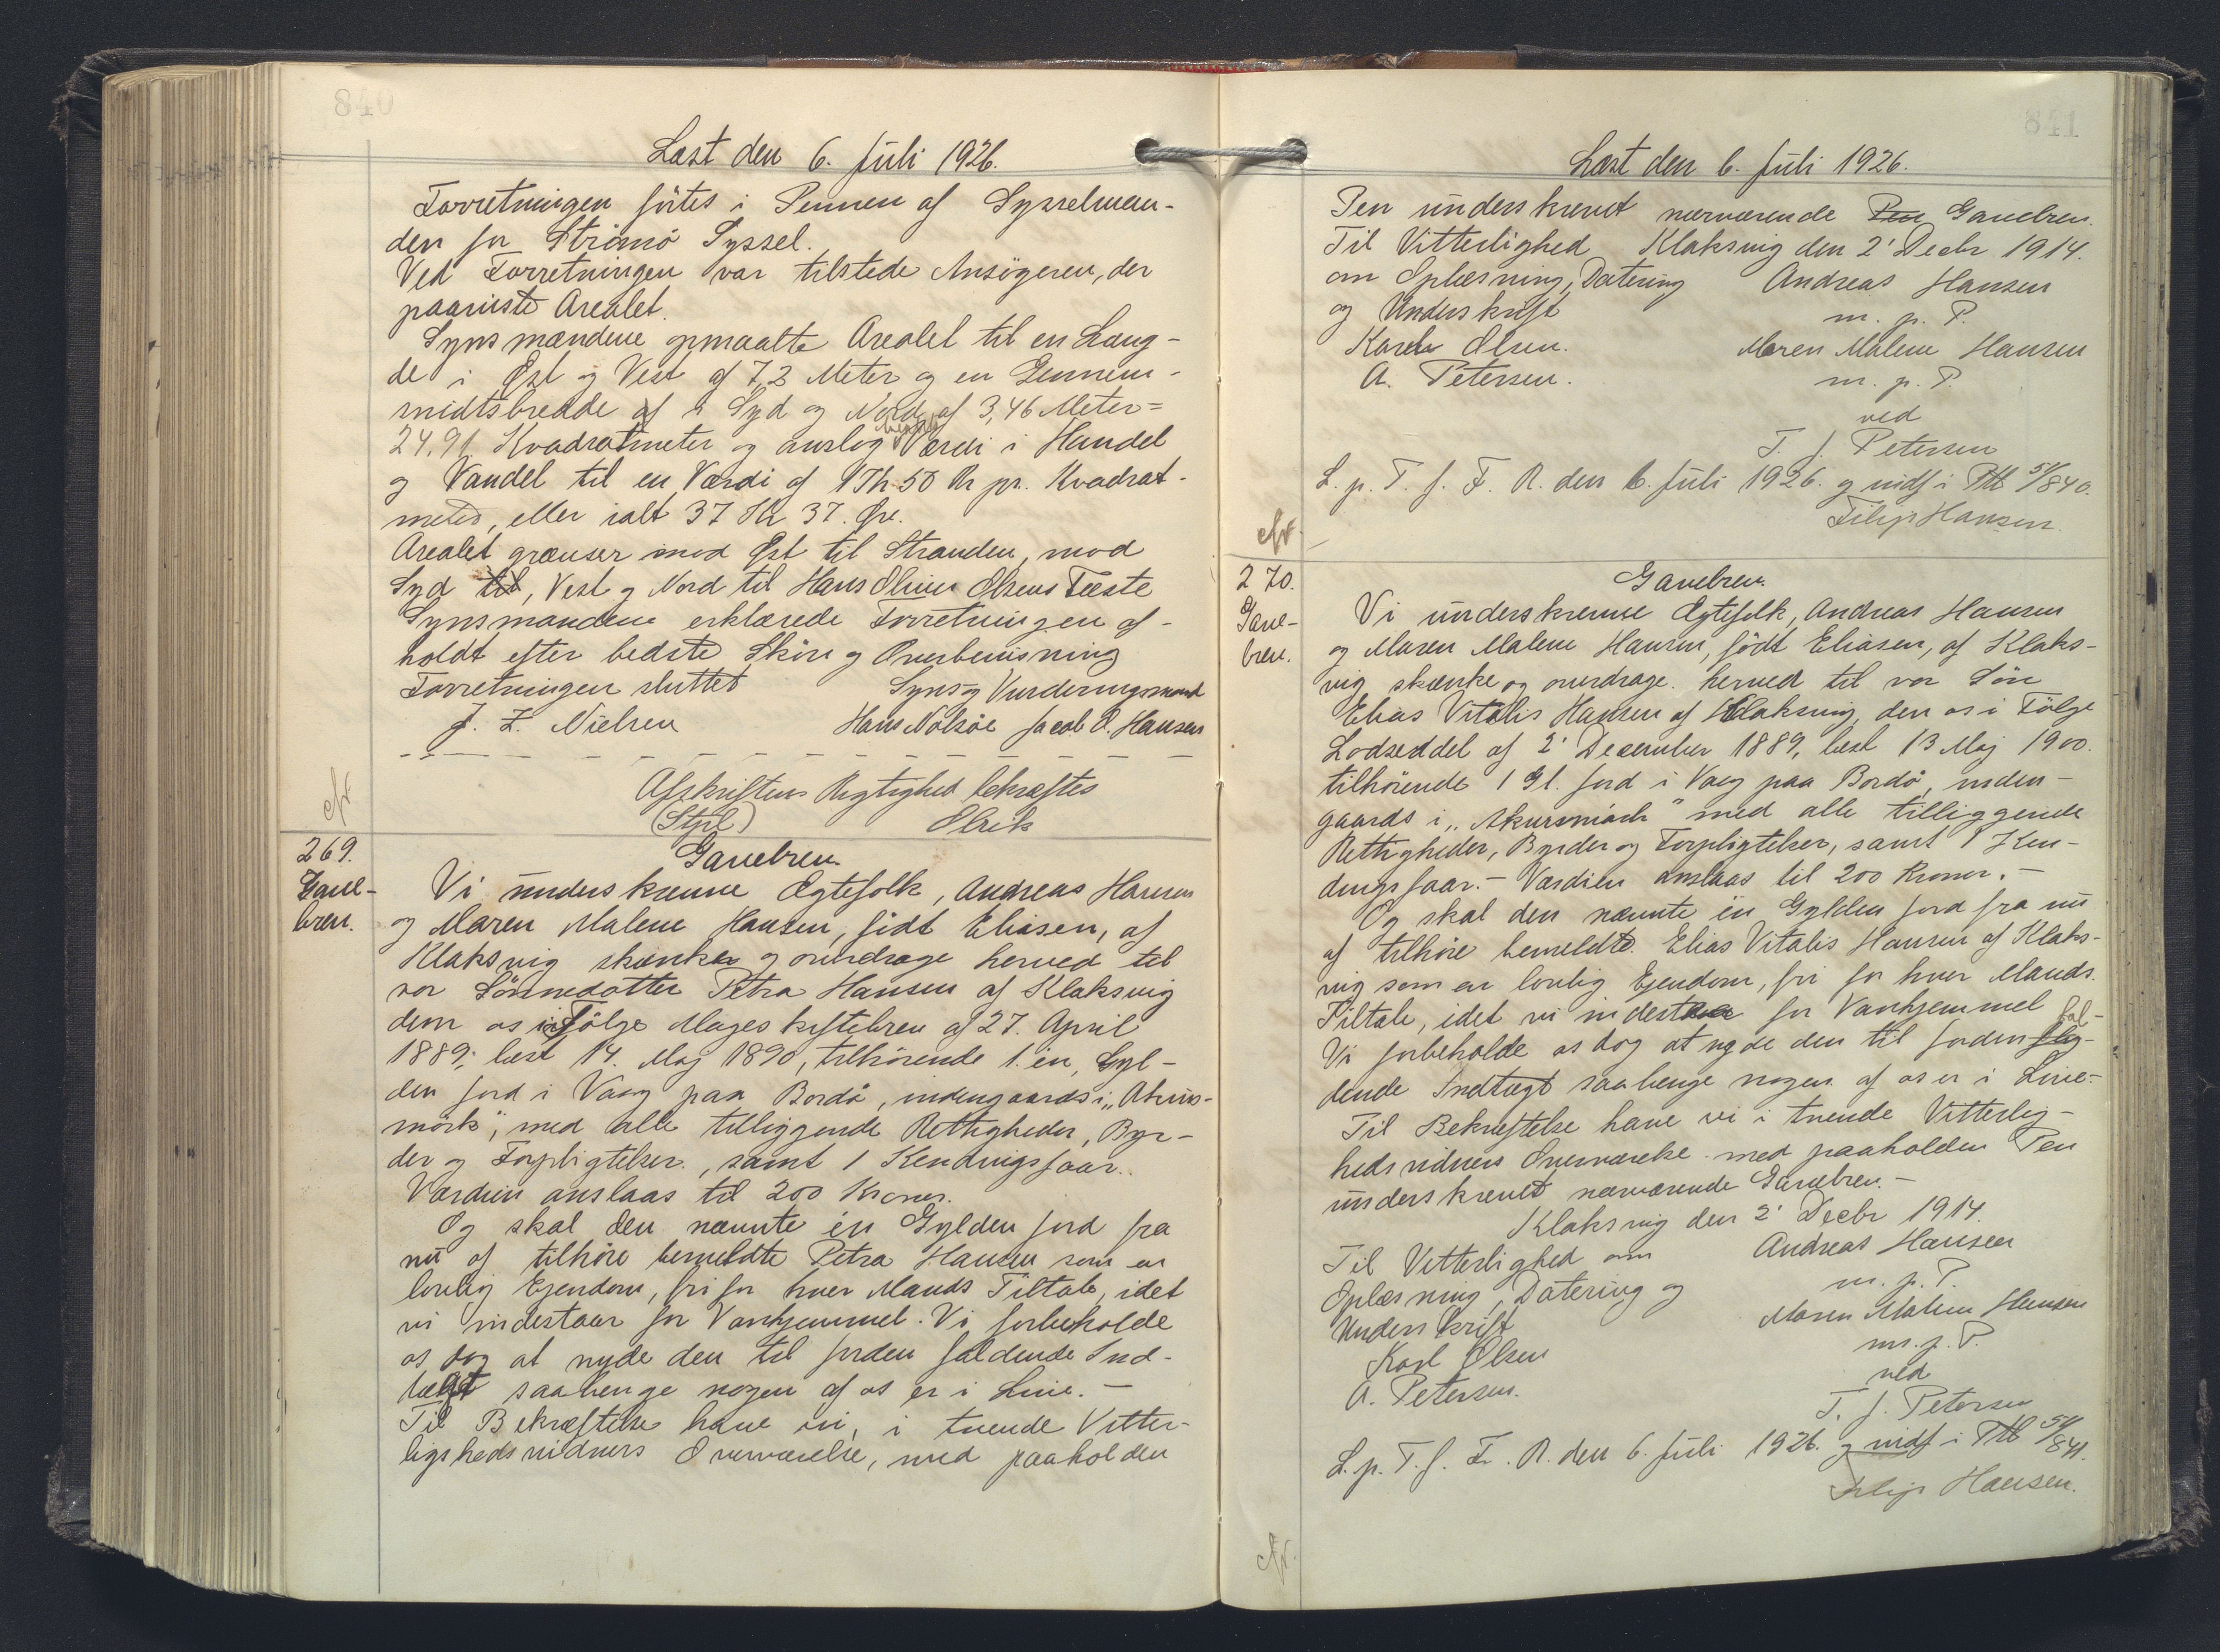 840
Læst den 6. Juli 1926.
Forretningen førtes i Pennen af Sysselman-
den for Strømø Syssel.
Ved Forretningen var tilstede Ansøgeren, der
paaviste Arealet.
Synsmændene opmaalte Arealet til en Læng-
de i Øst og Vest af 7,2 Meter og en Gennem-
snidtsbredde af i Syd og Nord af 3,46 Meter =
24,91 Kvadratmeter og anslog Værdi i Handel
og Vandel til en Værdi af 1 Kr 50 Ør pr. Kvadrat-
meter, eller ialt 37 Kr 37. Øre.
Arealet grænser mod Øst til Stranden, mod
Syd til, Vest og Nord til Hans Oliver Olsens Fæste
Synsmændene erklærede Forretningen af-
holdt efter bedste Skøn og Overbevisning
Forretningen sluttet
Syns og Vurderingsmænd
J. Z. Nielsen
Hans Nolsøe Jacob O. Hansen
Afskriftens Rigtighed bekræftes
(Stpl)
Olrik
cfr.
269.
Gave-
brev.
Gavebrev.
Vi underskrevne Ægtefolk, Andreas Hansen
og Maren Malene Hansen, født Eliasen, af
Klaksvig skænke og overdrage herved til
vor Sønnedatter Petra Hansen af Klaksvig
dem os i Følge Mageskiftebrev af 27. April
1889, læst 14. Maj 1890, tilhørende 1. én, Gyl-
den Jord i Vaag paa Bordø, indengaards i "Akurs-
mørk", med alle tilliggende Rettigheder, Byr-
der og Forpligtelser, samt 1 Kendingsfaar.
Værdien anslaas til 200 Kroner.
Og skal den nævnte én Gylden Jord fra
nu af tilhøre bemeldte Petra Hansen som en
lovlig Ejendom, fri for hver Mands Tiltale, idet
vi indestaar for Vanhjemmel. Vi forbeholde
os dog at nyde den til Jorden faldende Ind-
tægt saalænge nogen af os er i Live. -
Til Bekræftelse have vi, i tvende Vitter-
lighedsvidners Overværelse, med paaholden
841
Læst den 6. Juli 1926.
Pen underskrevet nærværende Pen Gavebrev.
Til Vitterlighed Klaksvig den 2' Decbr 1914.
om Oplæsning, Datering Andreas Hansen
og Underskrift m. p. P.
Karl Olsen. Maren Malene Hansen
A. Petersen. m. p. P.
ved
T. J. Petersen
L. p. T. f. F. R. den 6. Juli 1926. og indf i Ptb 5/840.
Filip Hansen.
cfr.
270.
Gave-
brev.
Gavebrev.
Vi underskrevne Ægtefolk, Andreas Hansen
og Maren Malene Hansen, født Eliasen, af Klaks-
vig skænke og overdrage herved til vor Søn
Elias Vitalis Hansen af Klaksvig, den os i Følge
Lodseddel af 2' December 1889, læst 13 Maj 1900.
tilhørende 1 Gl. Jord i Vaag paa Bordø, inden-
gaards i "Akursmørk" med alle tilliggende
Rettigheder, Byrder og Forpligtelser, samt 1 Ken-
dingsfaar. - Værdien anslaas til 200 Kroner. -
Og skal den nævnte én Gylden Jord fra nu
af tilhøre bemeldte Elias Vitalis Hansen af Klaks-
vig som en lovlig Ejendom, fri for hver Mands
Tiltale, idet vi indestaa for Vanhjemmel
Vi forbeholde os dog at nyde den til Jorden fal-
dende Indtægt saalænge nogen af os er i Live. -
Til Bekræftelse have vi i tvende Vitterlig-
hedsvidners Overværelse med paaholden Pen
underskrevet nærværende Gavebrev. -
Klaksvig den 2' Decbr 1914.
Til Vitterlighed om Andreas Hansen
Oplæsning, Datering og m. p. P.
Underskrift Maren Malene Hansen
Karl Olsen m. p. P.
A. Petersen. ved
T. J. Petersen
L. p. T. f. F. R. den 6. Juli 1926. og indf i Ptb 5/841.
Filip Hansen.
cfr.